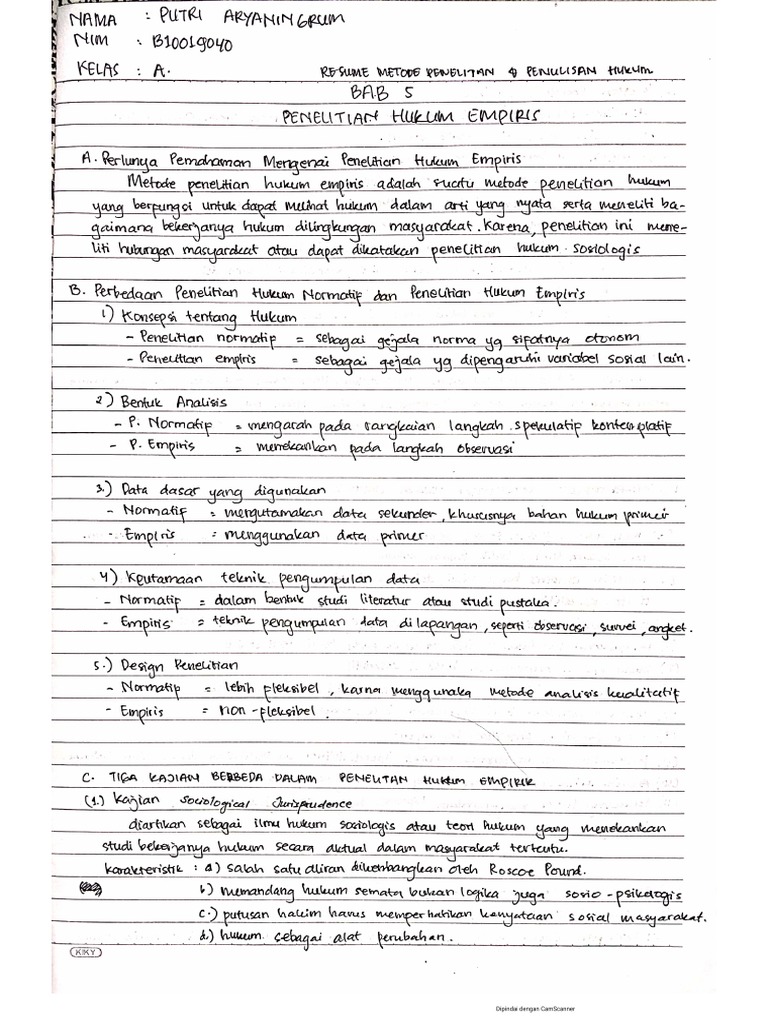 NAMA : PUTRI ARYANINGRUM
NIM : B10019040
KELAS : A.
RESUME METODE PENELITAN & PENULISAN HUKUM
BAB 5
PENELITIAN HUKUM EMPIRIS
A. Perlunya Pemahaman Mengenai Penelitian Hukum Empiris
Metode penelitian hukum empiris adalah suatu metode penelitian hukum
yang berfungsi untuk dapat melihat hukum dalam arti yang nyata serta meneliti ba-
gaimana bekerjanya hukum dilingkungan masyarakat. Karena, penelitian ini mene-
liti hubungan masyarakat atau dapat dikatakan penelitian hukum sosiologis
B. Perbedaan Penelitian Hukum Normatif dan Penelitian Hukum Empiris
1) Konsepsi tentang Hukum
- Penelitian normatif = sebagai gejala norma yg sifatnya otonom
- Penelitian empiris = sebagai gejala yg dipengaruhi variabel sosial lain.
2) Bentuk Analisis
- P. Normatif = mengarah pada rangkaian langkah spekulatif kontemplatif
- P. Empiris = menekankan pada langkah observasi
3.) Data dasar yang digunakan
- Normatif = mengutamakan data sekunder, khususnya bahan hukum primeir
- Empiris = menggunakan data primer
4) Keutamaan teknik pengumpulan data
- Normatif = dalam bentuk studi literatur atau studi pustaka.
- Empiris = teknik pengumpulan data di lapangan, seperti observasi, survei, angket.
5.) Design Penelitian
- Normatif = lebih fleksibel, karna menggunaka metode analisis kualitatif
- Empiris = non-fleksibel.
C. TIGA KAJIAN BERBEDA DALAM PENELITAN HUKUM EMPIRIK
(1.) Kajian Sociological Jurisprudence
diartikan sebagai ilmu hukum sosiologis atau teori hukum yang menekankan
studi bekerjanya hukum secara aktual dalam masyarakat tertentu.
Karakteristik : a) salah satu aliran dikembangkan oleh Roscoe Pound.
b) memandang hukum semata bukan logika juga sosio-psikologis
c.) putusan hakim harus memperhatikan kenyataan sosial masyarakat.
d.) hukum sebagai alat perubahan.
KIKY
Dipindai dengan CamScanner